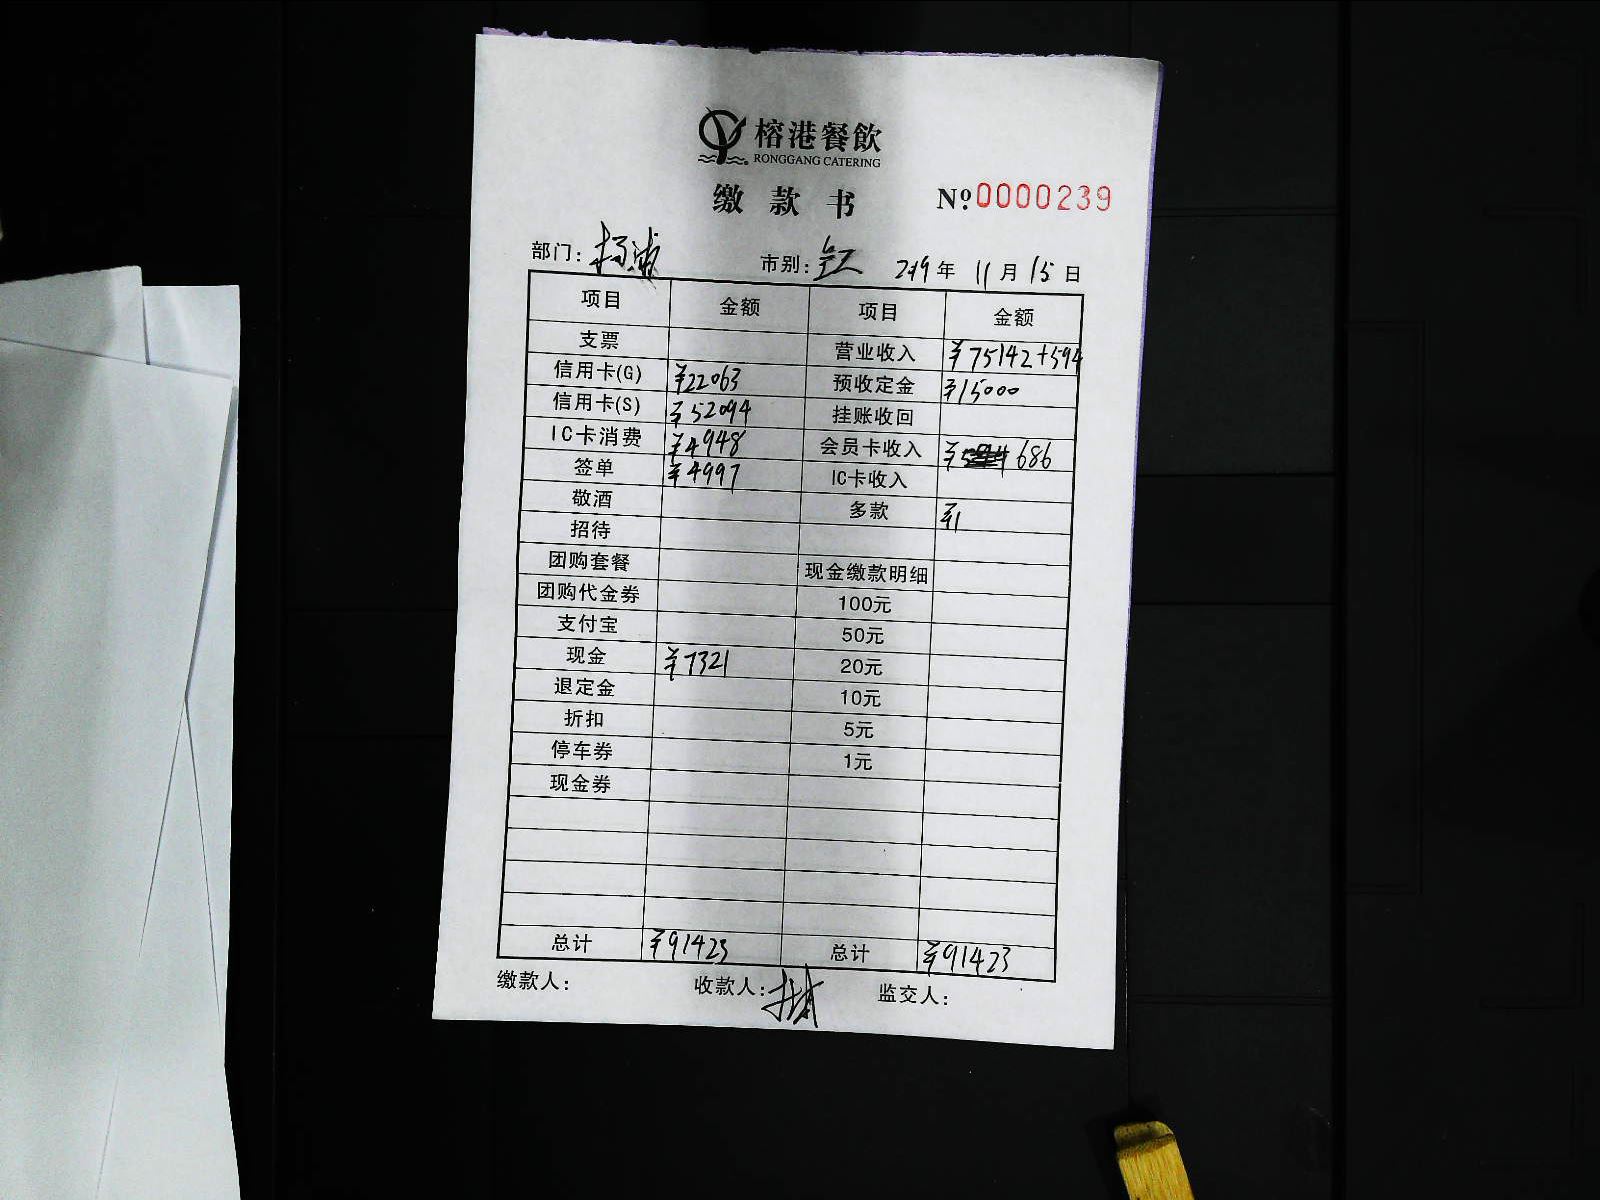 榕港餐飲
RONGGANG CATERING
缴款书 Nº 0000239
部门：杨浦 市别： 2019年 11月15日
项目 金额 项目 金额
支票 营业收入 ¥75142+594
信用卡(G) ¥22063 预收定金 ¥15000
信用卡(S) ¥52094 挂账收回
IC卡消费 ¥4948 会员卡收入 ¥686
签单 ¥4997 IC卡收入
敬酒 多款 ¥1
招待
团购套餐 现金缴款明细
团购代金券 100元
支付宝 50元
现金 ¥7321 20元
退定金 10元
折扣 5元
停车券 1元
现金券
总计 ¥91423 总计 ¥91423
缴款人： 收款人： 监交人：